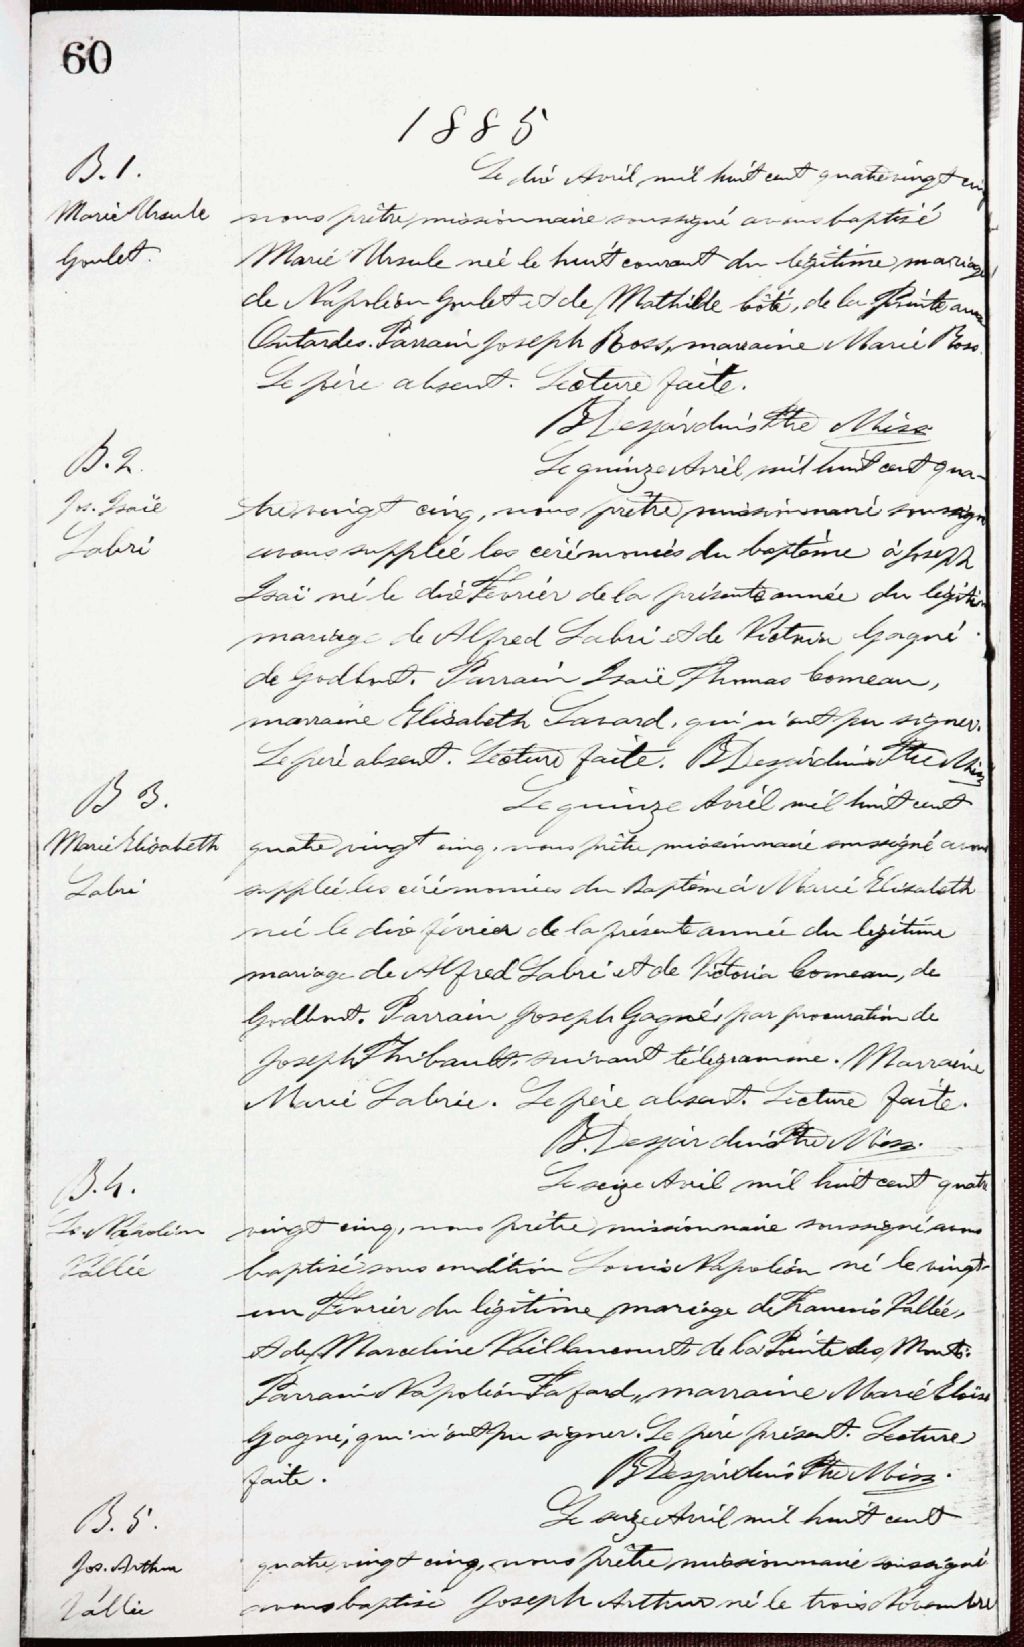 60
1885
B. 1.
Marie Ursule
Goulet.
Le dix Avril mil huit cent quatre vingt cinq
nous prêtre missionnaire soussigné avons baptisé
Marie Ursule née le huit courant du légitime mariage
de Napoléon Goulet et de Mathilde Côté, de la Pointe aux
Outardes. Parrain Joseph Ross, marraine Marie Ross.
Le père absent. Lecture faite.
B Desjardins Ptre Miss.
B. 2.
Jos. Isaïe
Labri
Le quinze Avril mil huit cent qua-
tre vingt cinq, nous prêtre missionnaire soussigné
avons supplée les cérémonies du baptême à Joseph
Isaï né le dix Février de la présente année du légitime
mariage de Alfred Labri et de Victoria Gagné
de Godbout. Parrain Isaïe Thomas Comeau,
marraine Elisabeth Savard, qui n'ont pu signer.
Le père absent. Lecture faite. B Desjardins Ptre Miss
B 3.
Marie Elisabeth
Labri
Le quinze Avril mil huit cent
quatre vingt cinq, nous prêtre missionnaire soussigné avons
supplée les cérémonies du Baptême à Marie Elisabeth
née le dix février de la présente année du légitime
mariage de Alfred Labri et de Victoria Comeau, de
Godbout. Parrain Joseph Gagné, par procuration de
Joseph Thibault, suivant télégramme. Marraine
Marie Labrie. Le père absent. Lecture faite.
B. Desjardins Ptre Miss.
B. 4.
Ls. Napoléon
Vallée
Le seize Avril mil huit cent quatre
vingt cinq, nous prêtre missionnaire soussigné avons
baptisé sous condition Louis Napoléon né le vingt-
un Février du légitime mariage de François Vallée,
et de Marceline Vaillancourt de la Pointe des Monts.
Parrain Napoléon Fafard, marraine Marie Eloïse
Gagné, qui n'ont pu signer. Le père présent. Lecture
faite.
B Desjardins Ptre Miss.
B. 5.
Jos. Arthur
Vallée
Le seize Avril mil huit cent
quatre vingt cinq, nous prêtre missionnaire soussigné
avons baptisé Joseph Arthur né le trois Novembre